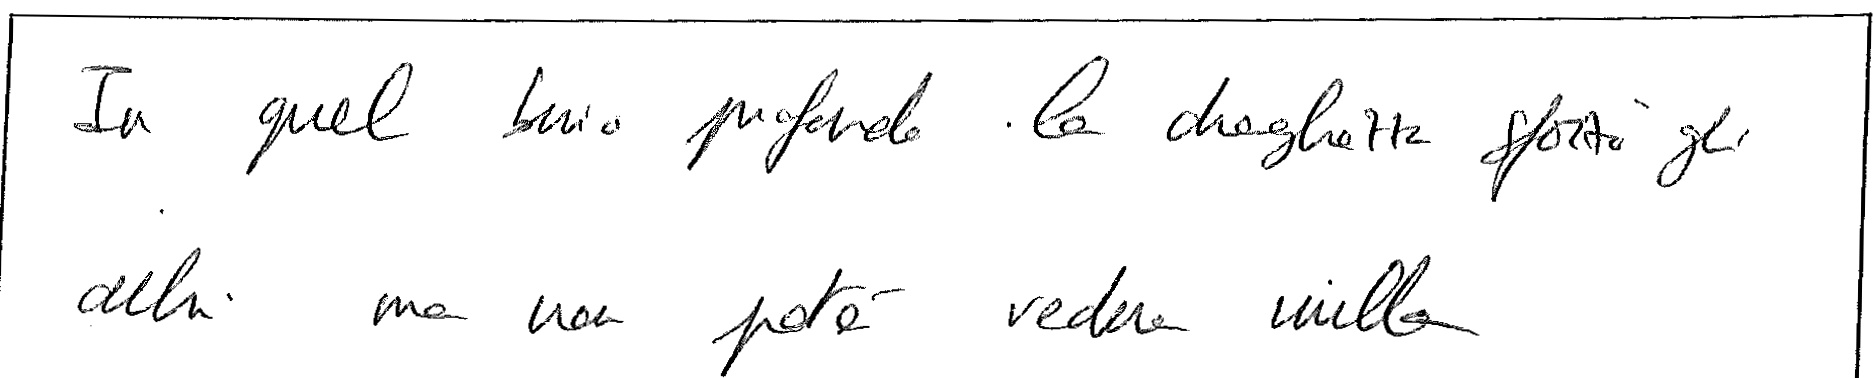 In quel buio profondo la draghetta sforzò gli
occhi ma non poté vedere nulla